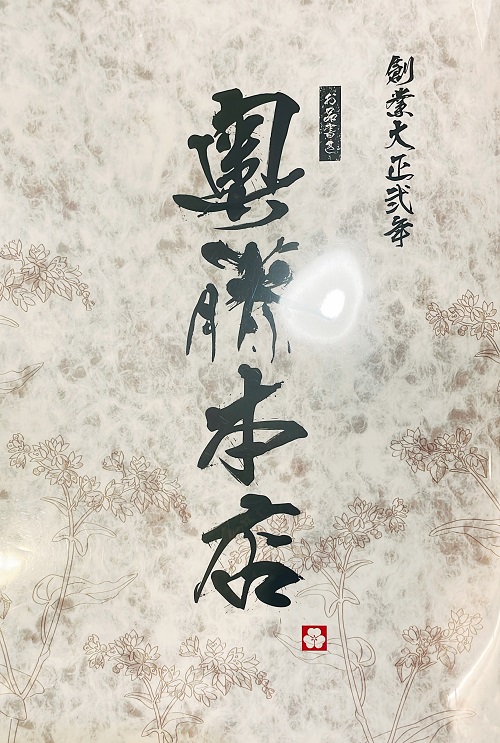 創業大正弐年
お品書き
奥藤本店